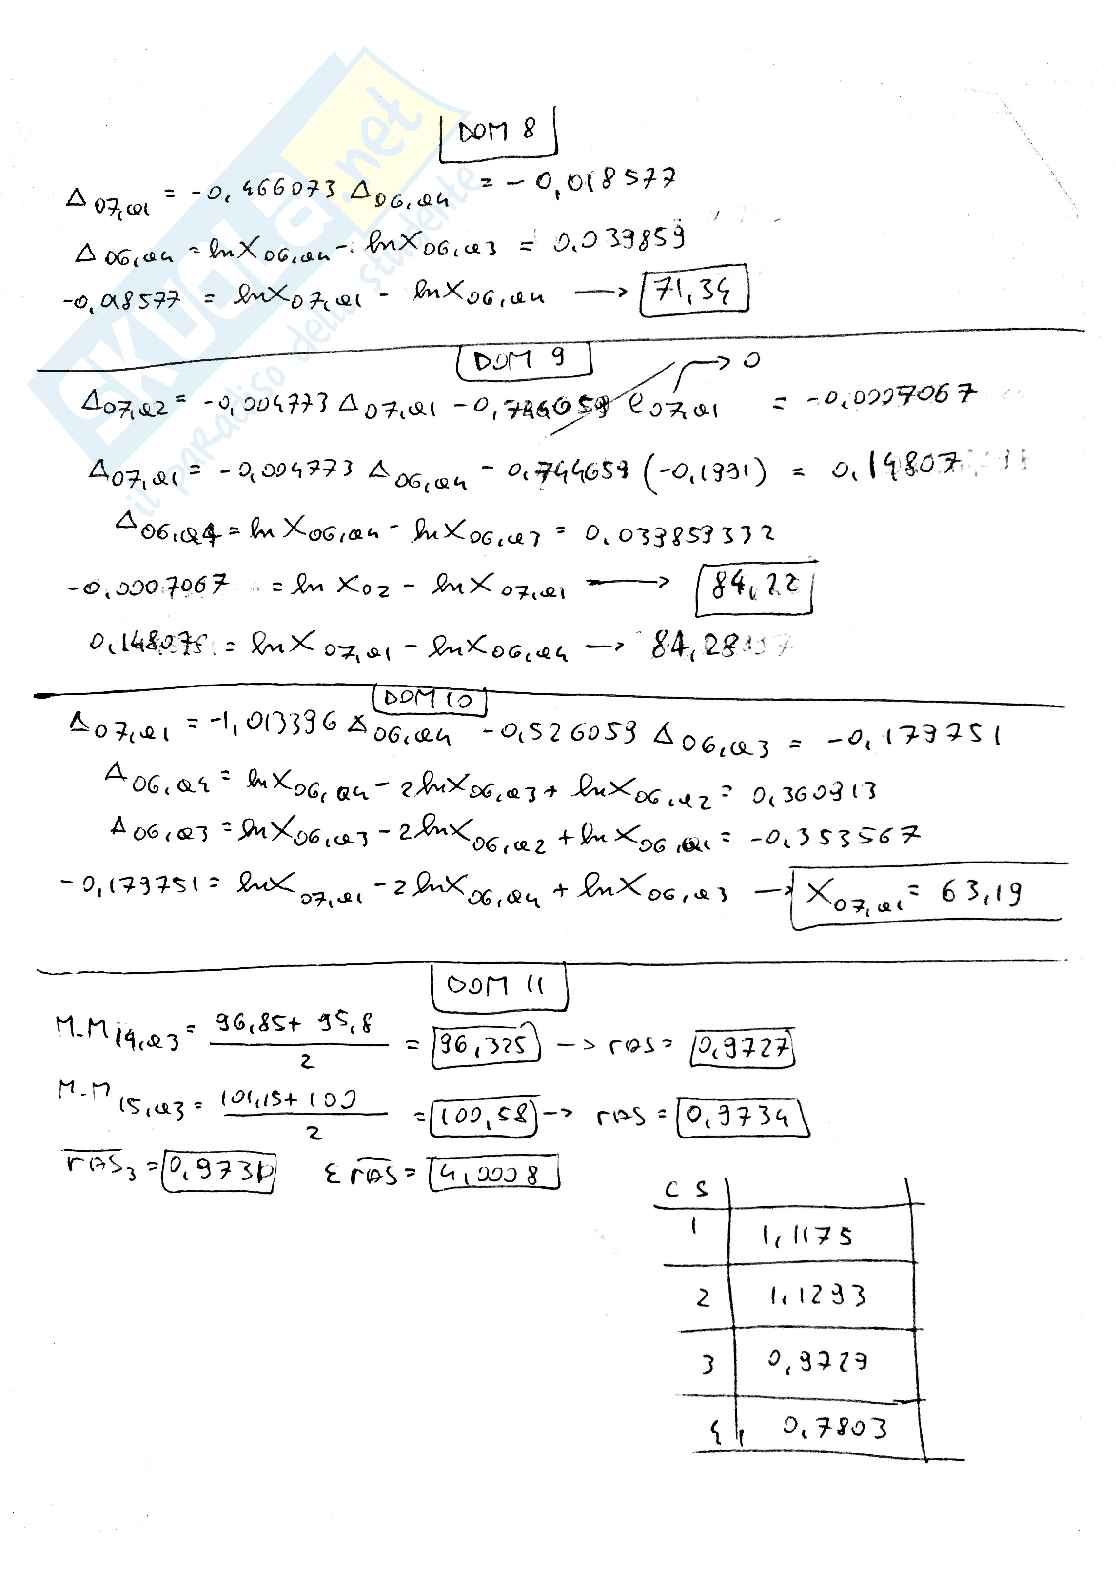 SKUOLA.net
il paradiso dello studente
DOM 8
Δ07,Q1 = -0,466073 Δ06,Q4 = -0,018577
Δ06,Q4 = lnX06,Q4 - lnX06,Q3 = 0,039859
-0,018577 = lnX07,Q1 - lnX06,Q4 → 71,34
DOM 9
Δ07,Q2 = -0,004773 Δ07,Q1 - 0,744659 e07,Q1 → 0 = -0,0007067
Δ07,Q1 = -0,004773 Δ06,Q4 - 0,744659 (-0,1991) = 0,14807
Δ06,Q4 = lnX06,Q4 - lnX06,Q3 = 0,039859332
-0,0007067 = lnX02 - lnX07,Q1 → 84,22
0,148075 = lnX07,Q1 - lnX06,Q4 → 84,28
DOM 10
Δ07,Q1 = -1,013396 Δ06,Q4 - 0,526059 Δ06,Q3 = -0,179751
Δ06,Q4 = lnX06,Q4 - 2lnX06,Q3 + lnX06,Q2 = 0,360913
Δ06,Q3 = lnX06,Q3 - 2lnX06,Q2 + lnX06,Q1 = -0,353567
-0,179751 = lnX07,Q1 - 2lnX06,Q4 + lnX06,Q3 → X07,Q1 = 63,19
DOM 11
M.M14,Q3 = 96,85 + 95,8 / 2 = 96,325 → ras = 0,9727
M.M15,Q3 = 101,15 + 100 / 2 = 100,58 → ras = 0,9734
ras3 = 0,9730 Σ ras = 4,0008
C S
1 1,1175
2 1,1293
3 0,9729
4 0,7803